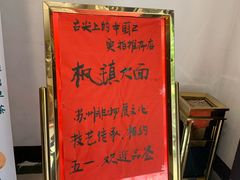 舌尖上的中国2
实拍推荐店
枫镇大面
苏州非物质文化
技艺传承.相约
五一 欢迎品鉴